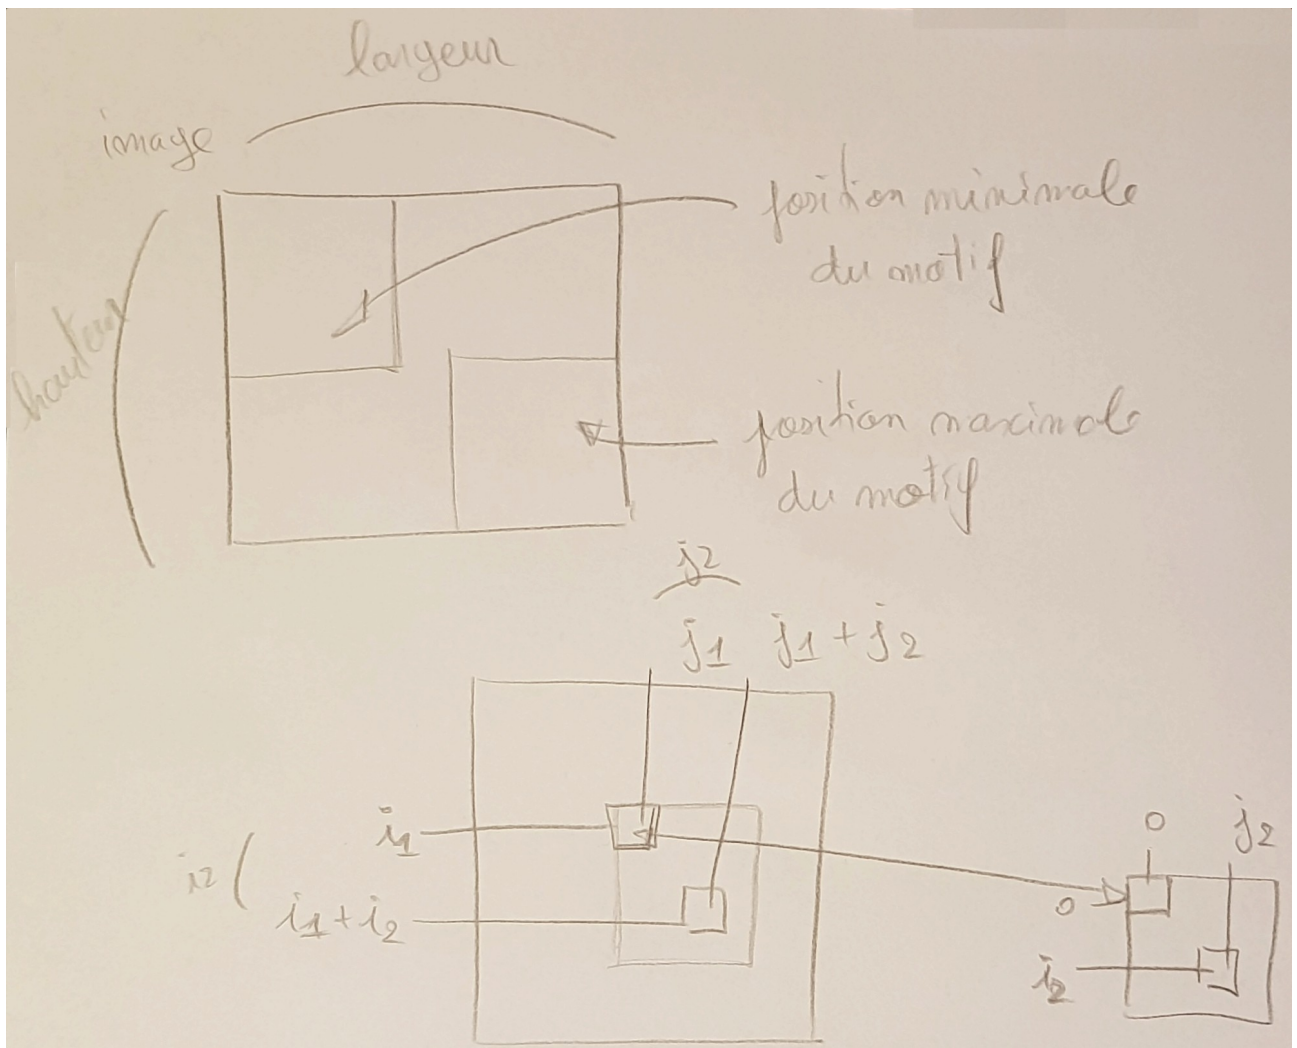 largeur
image
position minimale
du motif
hauteur
position maximale
du motif
j2
j1 j1+j2
i1
i2
i1+i2
0 j2
0
i2